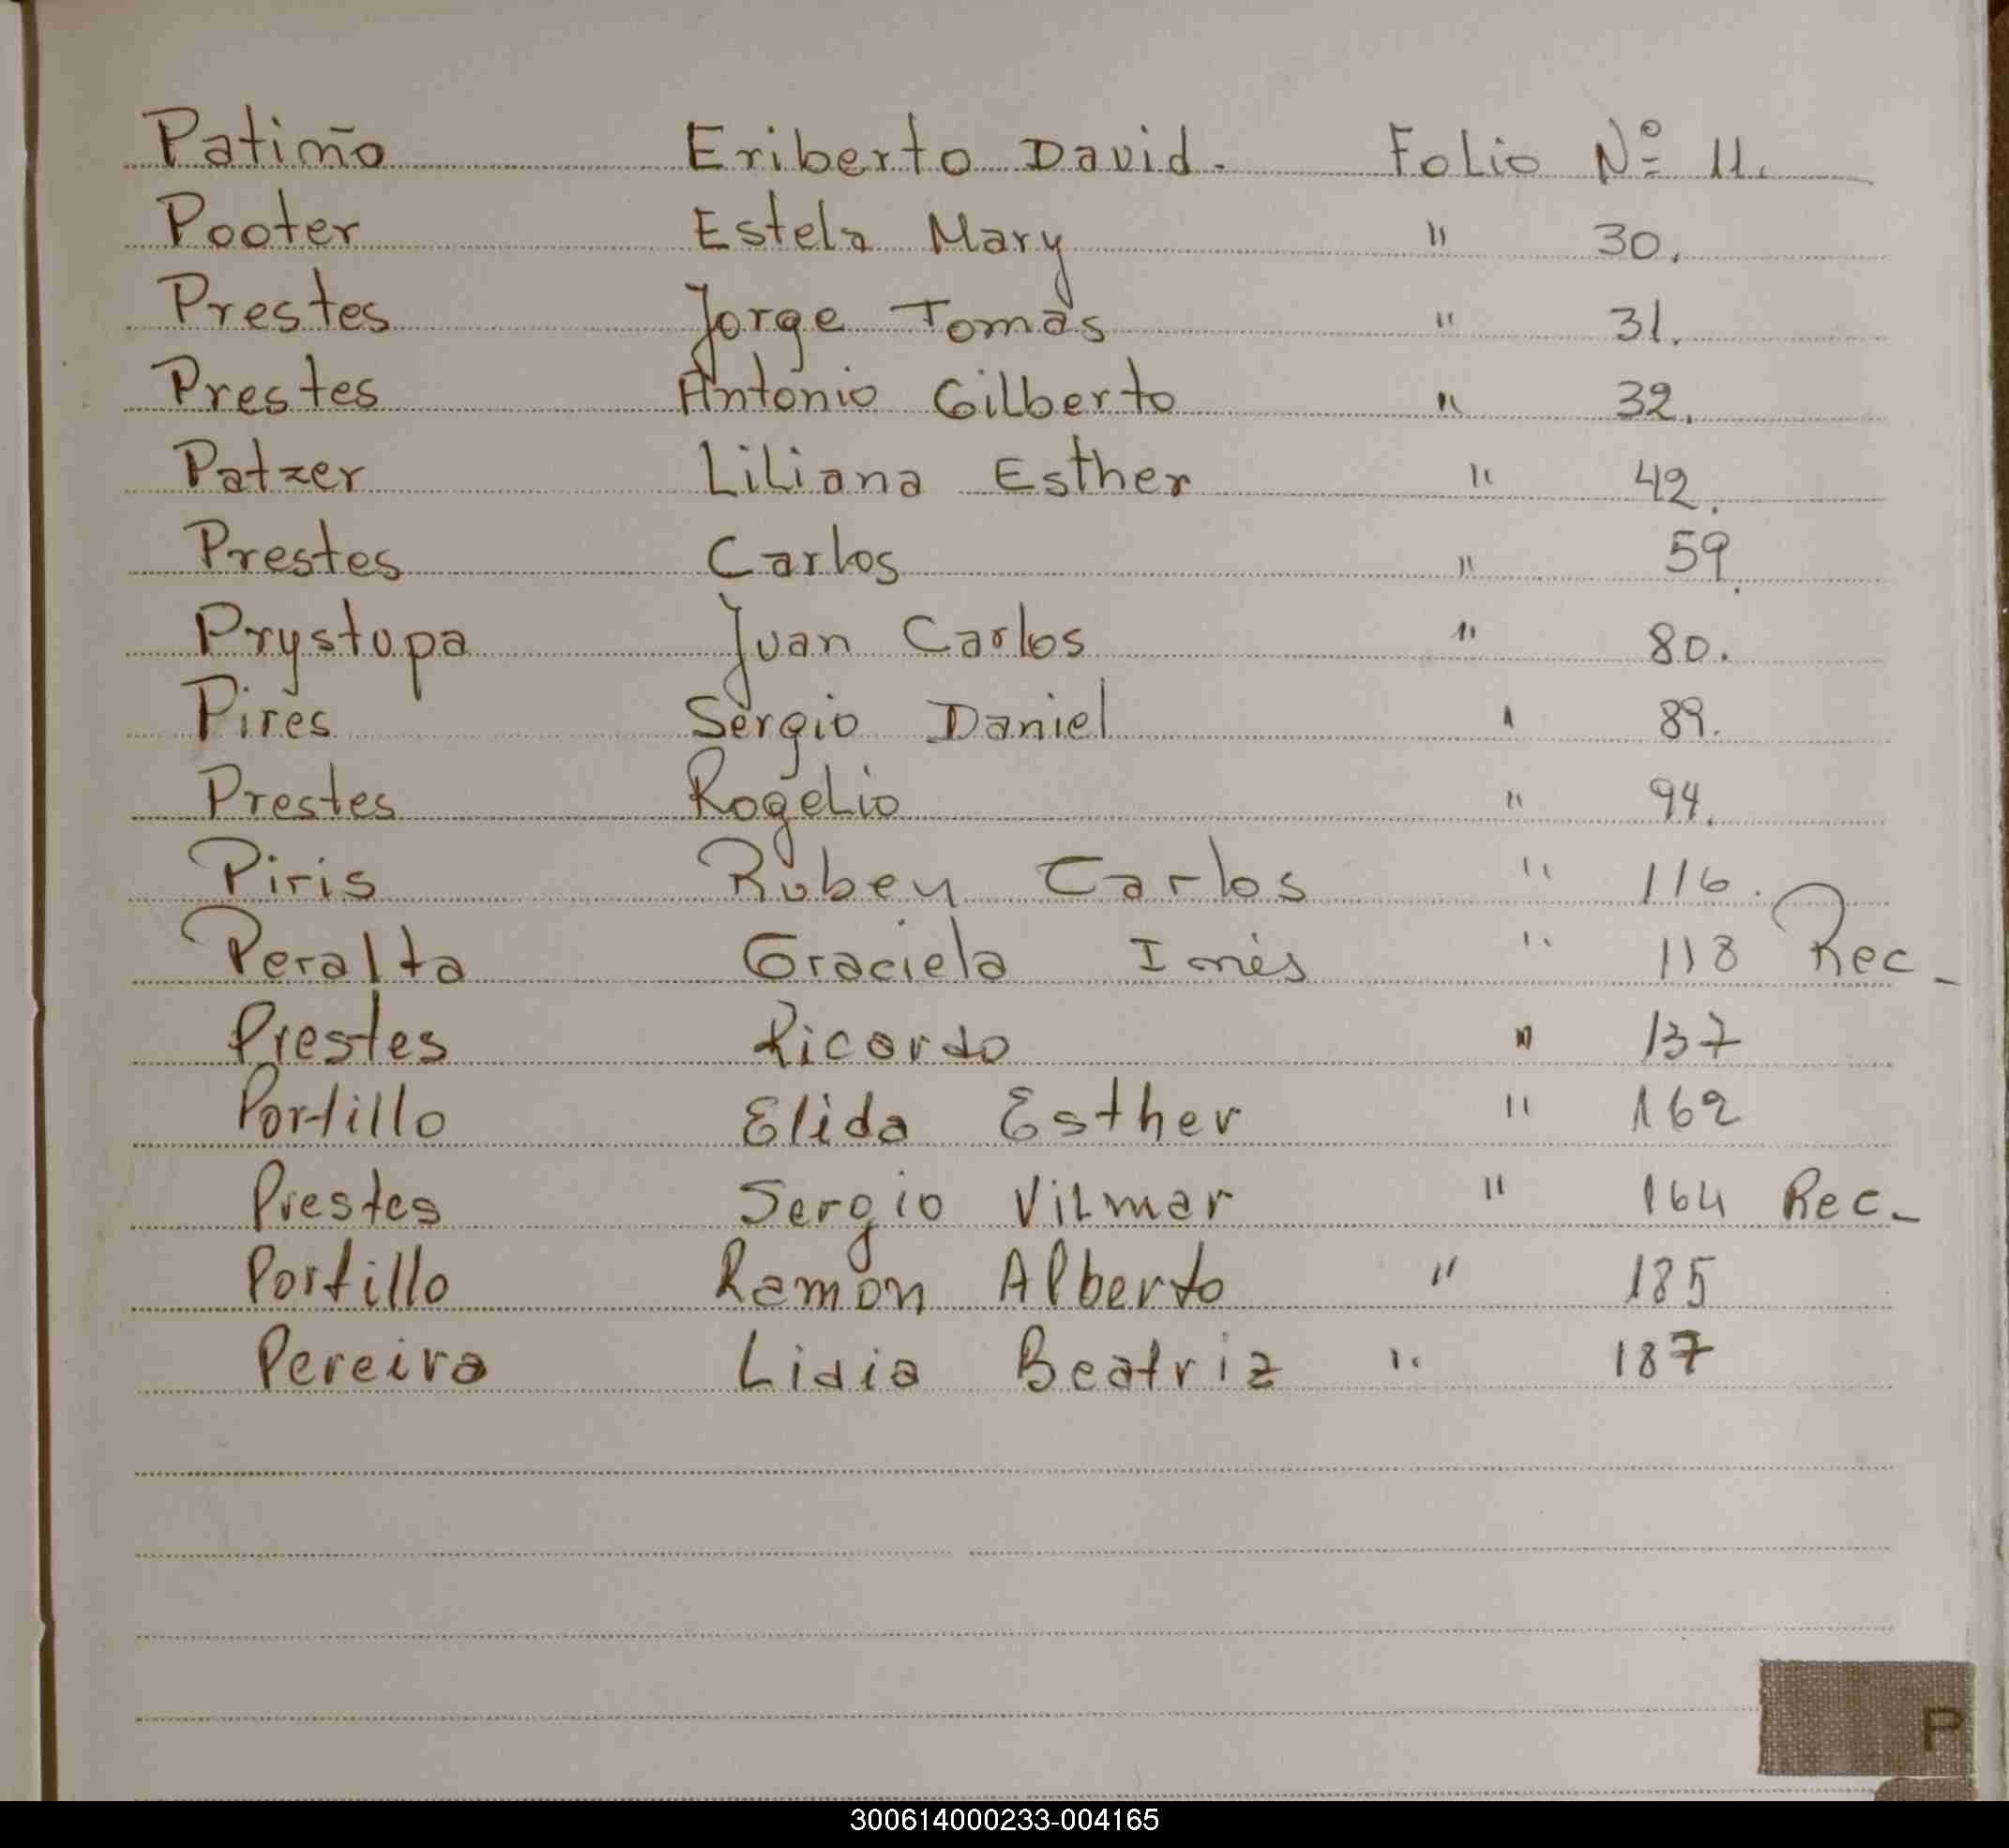 Patiño Eriberto David. Folio Nº 11.
Pooter Estela Mary " 30.
Prestes Jorge Tomás " 31.
Prestes Antonio Gilberto " 32.
Patzer Liliana Esther " 42.
Prestes Carlos " 59.
Prystupa Juan Carlos " 80.
Pires Sergio Daniel " 89.
Prestes Rogelio " 94.
Piris Rubey Carlos " 116.
Peralta Graciela Inés " 118 Rec.
Prestes Ricardo " 137
Portillo Elida Esther " 162
Prestes Sergio Vilmar " 164 Rec.
Portillo Ramón Alberto " 185
Pereira Lidia Beatriz " 187
P
300614000233-004165